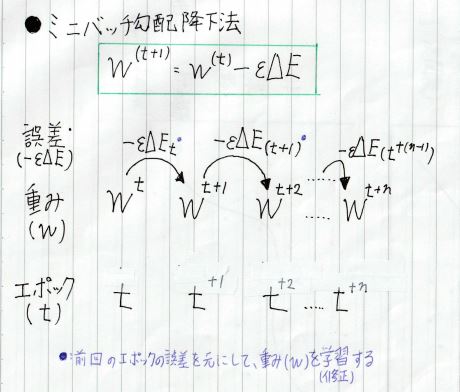 ●ミニバッチ勾配降下法
W^(t+1) = W^(t) − εΔE
誤差
(−εΔE)
−εΔEt −εΔE(t+1) −εΔE(t+(n-1))
重み
(W)
W^t W^t+1 W^t+2 ..... W^t+n
エポック
(t)
t t^+1 t^+2 ..... t^+n
●前回のエポックの誤差を元にして、重み(W)を学習する
(修正)